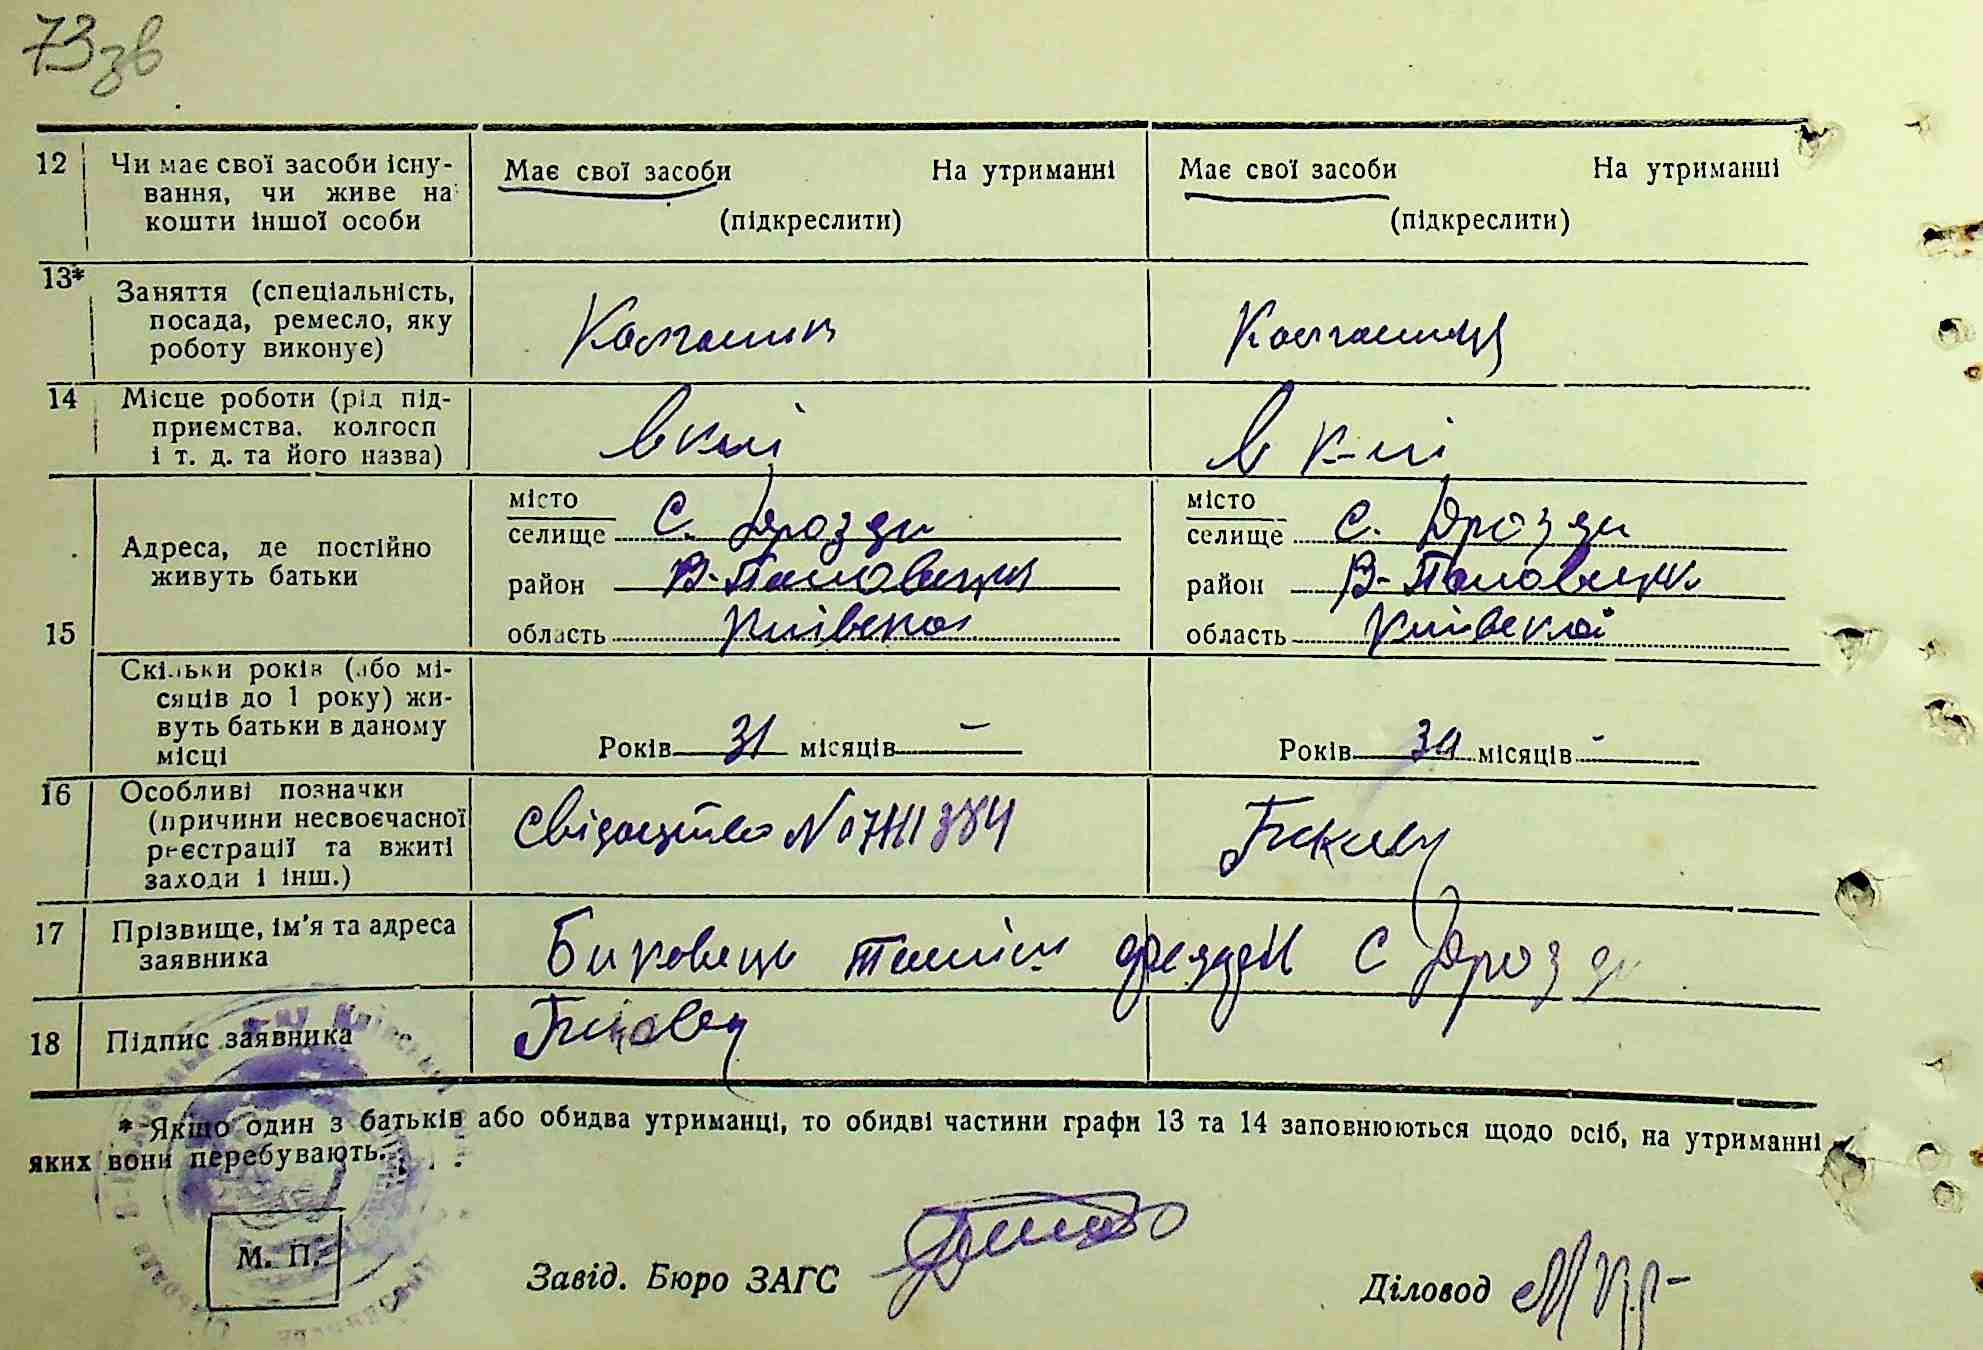 73зв
12 Чи має свої засоби існу-
вання, чи живе на
кошти іншої особи
Має свої засоби На утриманні
(підкреслити)
Має свої засоби На утриманні
(підкреслити)
13* Заняття (спеціальність,
посада, ремесло, яку
роботу виконує)
Колгоспник
Колгоспниця
14 Місце роботи (рід під-
приємства, колгосп
і т. д. та його назва)
в к-пі
в к-пі
15 Адреса, де постійно
живуть батьки
місто
селище с. Дрозди
район В-Половецьк
область Київської
місто
селище с. Дрозди
район В-Половецьк
область Київської
Скільки років (або мі-
сяців до 1 року) жи-
вуть батьки в даному
місці
Років 31 місяців —
Років 30 місяців —
16 Особливі позначки
(причини несвоєчасної
реєстрації та вжиті
заходи і інш.)
Свідоцтво №
17 Прізвище, ім'я та адреса
заявника
Биковець с Дрозди
18 Підпис заявника
* Якщо один з батьків або обидва утриманці, то обидві частини графи 13 та 14 заповнюються щодо осіб, на утриманні
яких вони перебувають.
М. П.
Завід. Бюро ЗАГС
Діловод